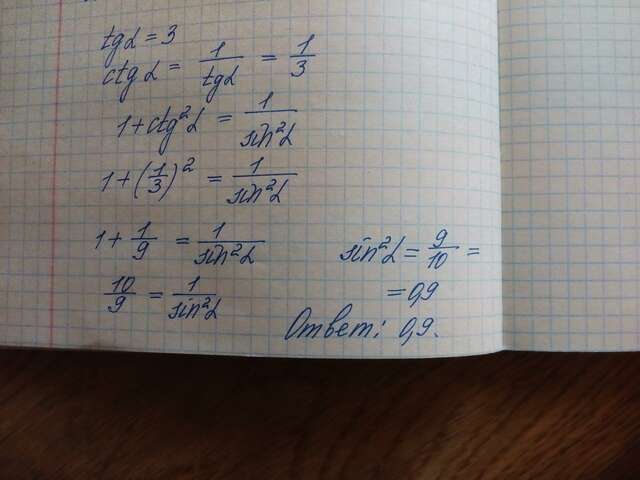 tgα = 3
ctgα = 1/tgα = 1/3
1 + ctg²α = 1/sin²α
1 + (1/3)² = 1/sin²α
1 + 1/9 = 1/sin²α
10/9 = 1/sin²α
sin²α = 9/10 =
= 0,9
Ответ: 0,9.